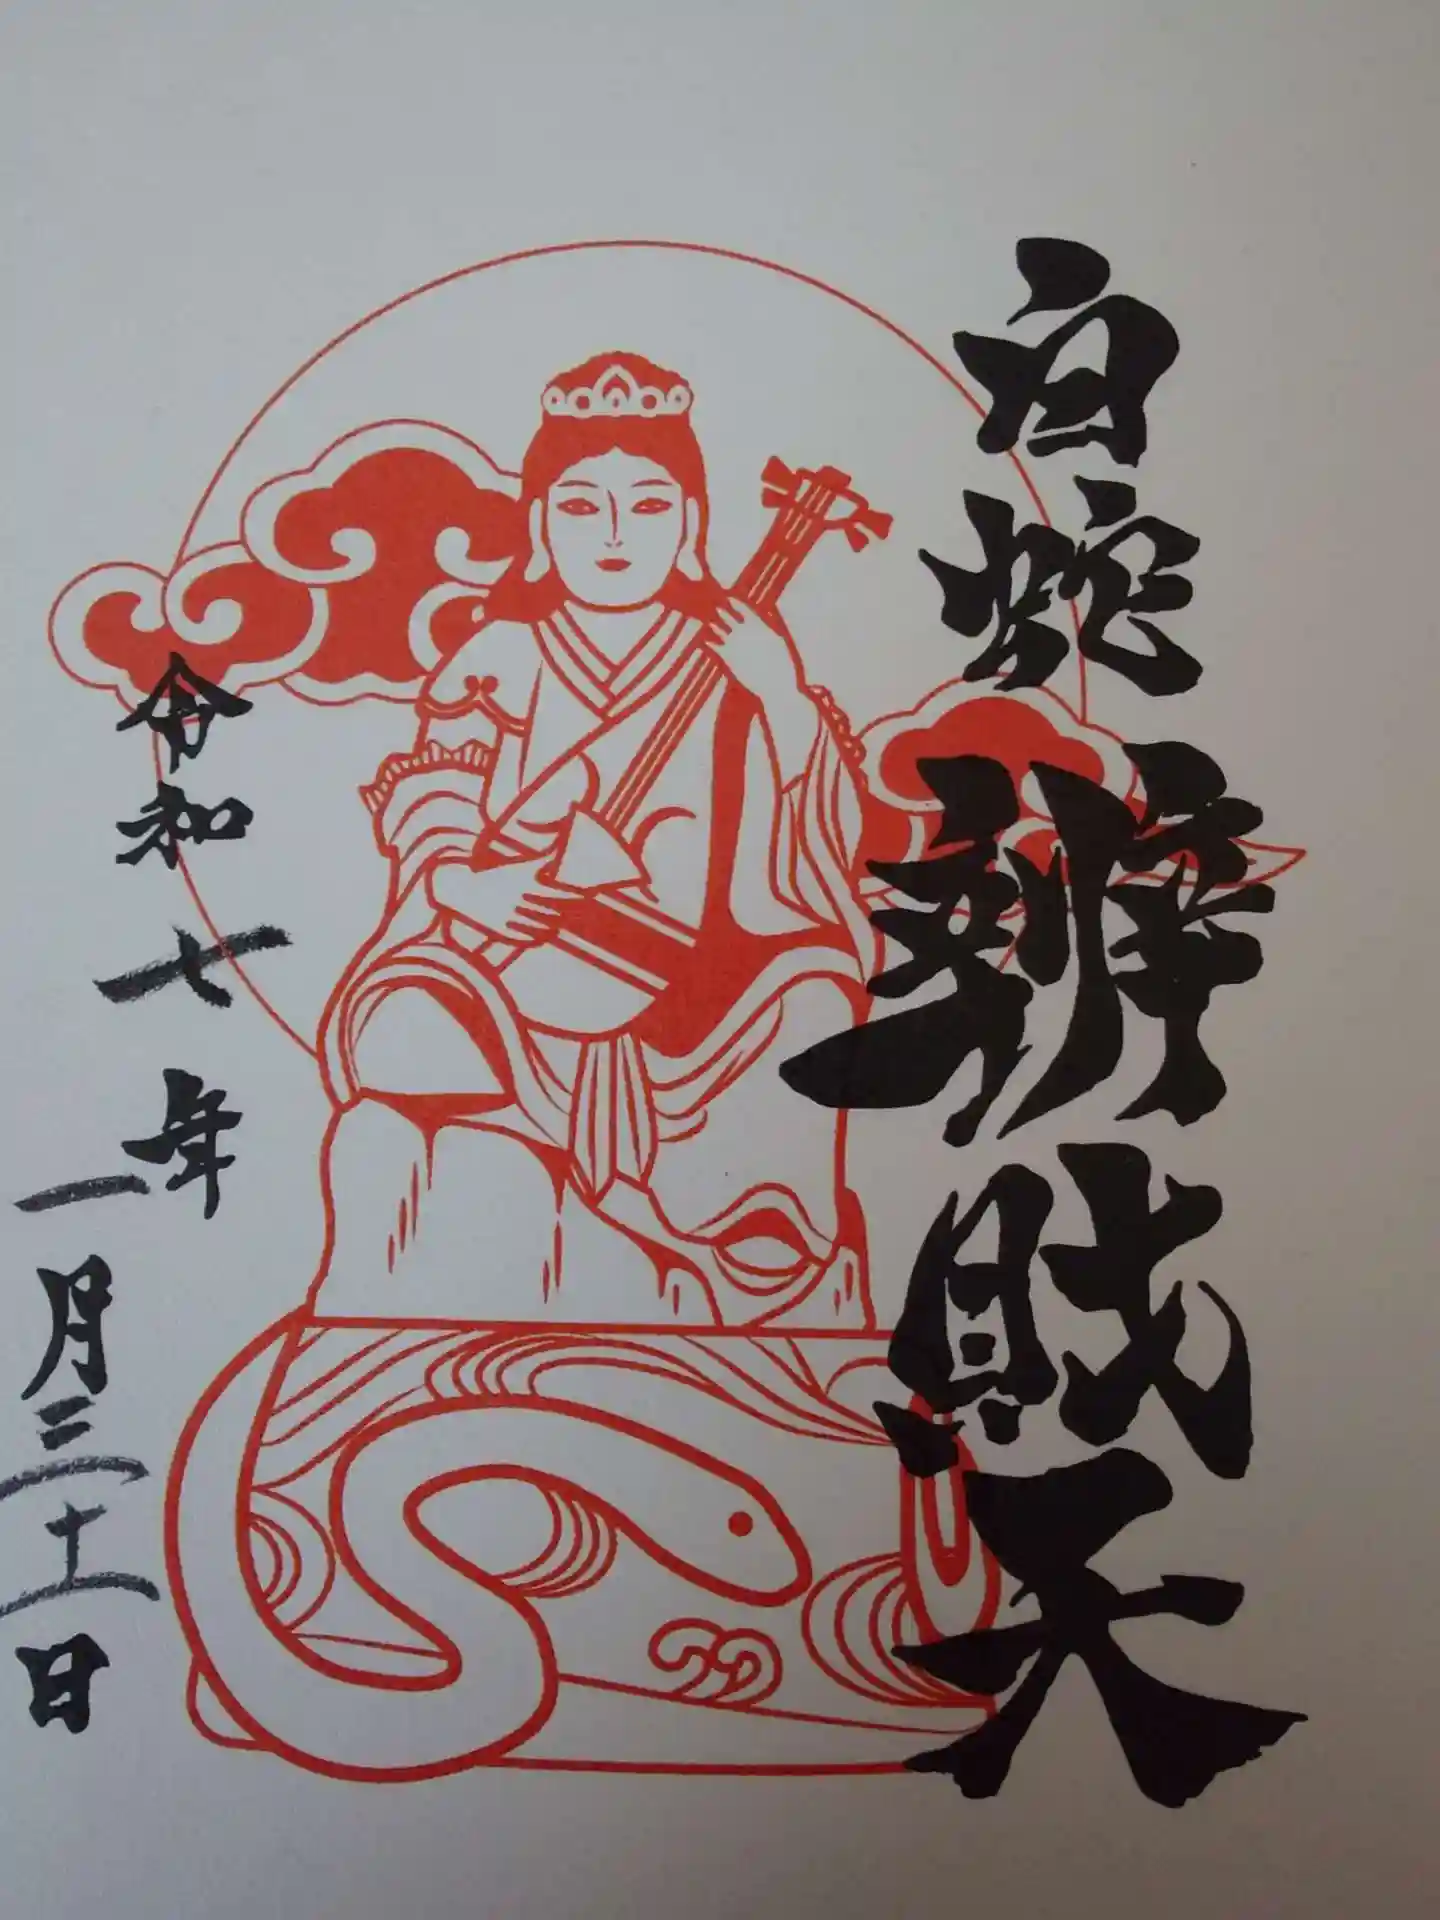 白蛇辨財天
令和七年
一月三十一日